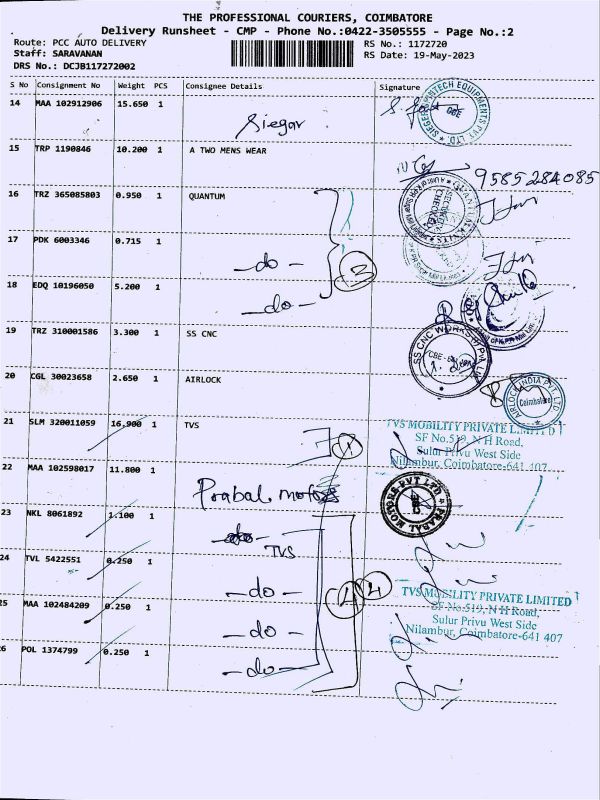 THE PROFESSIONAL COURIERS, COIMBATORE
Delivery Runsheet - CMP - Phone No.:0422-3505555 - Page No.:2
Route: PCC AUTO DELIVERY
RS No.: 1172720
Staff: SARAVANAN
RS Date: 19-May-2023
DRS No.: DCJB117272002
S No Consignment No Weight PCS Consignee Details Signature
14 MAA 102912906 15.650 1
Siegar
15 TRP 1190846 10.200 1 A TWO MENS WEAR
9585284085
16 TRZ 365085803 0.950 1 QUANTUM
SECURITY CHECKED
17 PDK 6003346 0.715 1
-do-
3
18 EDQ 10196050 5.200 1
-do-
19 TRZ 310001586 3.300 1 SS CNC
20 CGL 30023658 2.650 1 AIRLOCK
AIRLOCK INDIA PVT. LTD
Coimbatore
21 SLM 320011059 16.900 1 TVS
1
TVS MOBILITY PRIVATE LIMITED
SF No.519, N H Road,
Sulur Privu West Side
Nilambur, Coimbatore-641 407
22 MAA 102598017 11.800 1
Prabal motors
PRABAL MOTORS PVT LTD
23 NKL 8061892 1.100 1
TVS
24 TVL 5422551 0.250 1
-do-
4
TVS MOBILITY PRIVATE LIMITED
SF No.519, N H Road,
Sulur Privu West Side
Nilambur, Coimbatore-641 407
25 MAA 102484209 0.250 1
-do-
26 POL 1374799 0.250 1
-do-